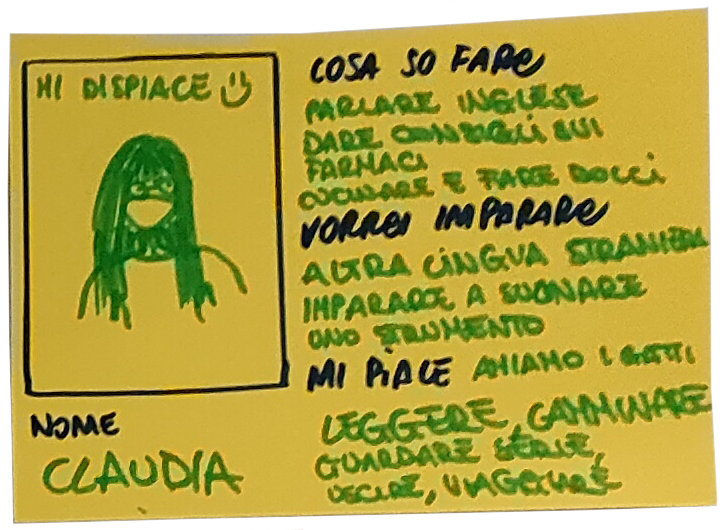 MI DISPIACE
NOME
CLAUDIA
COSA SO FARE
PARLARE INGLESE
DARE CONSIGLI SUI
FARMACI
CUCINARE E FARE DOLCI
VORREI IMPARARE
ALTRA LINGUA STRANIERA
IMPARARE A SUONARE
UNO STRUMENTO
MI PIACE AMIAMO I GATTI
LEGGERE, CAMMINARE
GUARDARE SERIE,